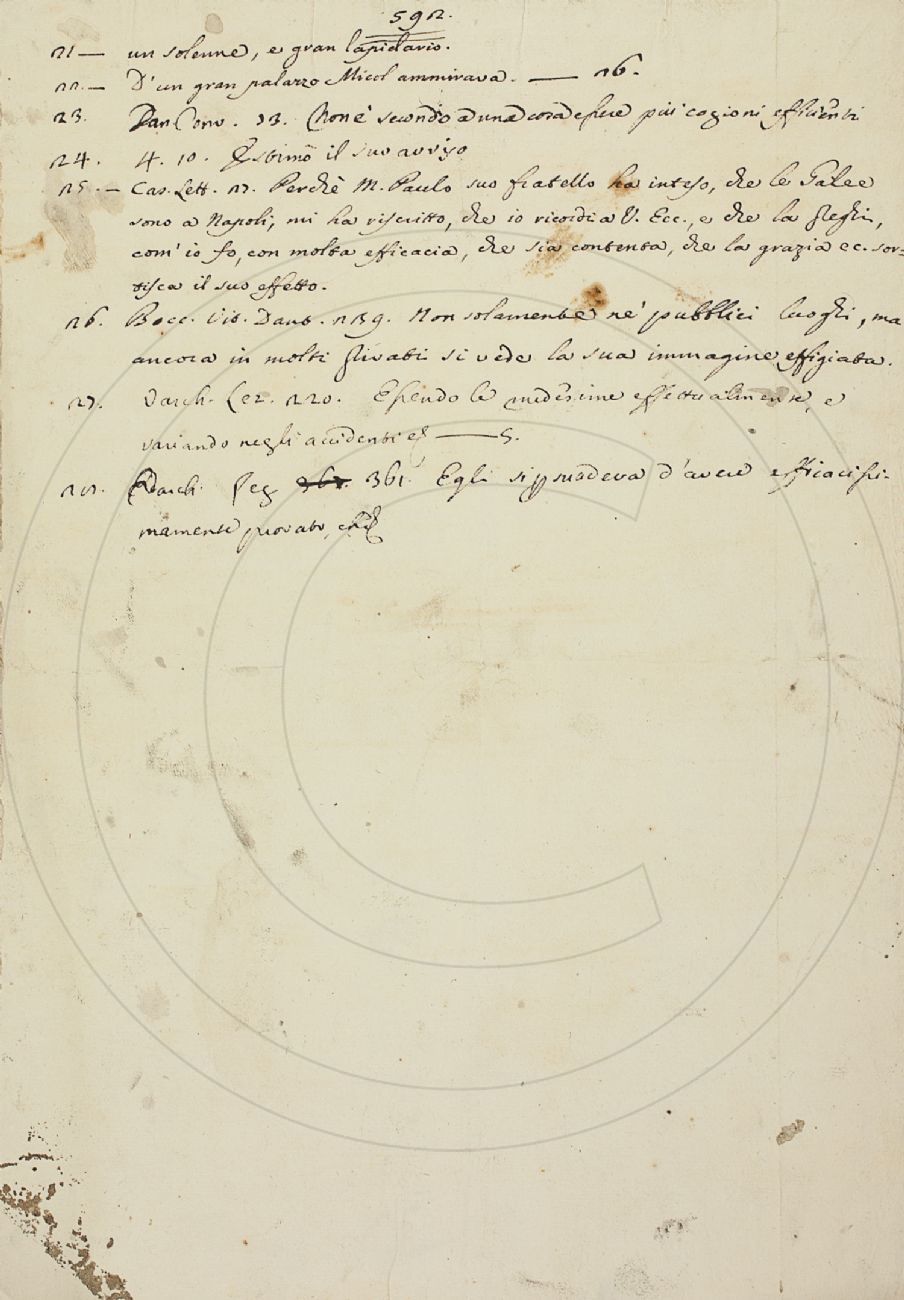 592.
21 — un solenne, e gran lapidario.
22. — D'un gran palazzo Micol ammirava. — 26.
23. Dan Conv. 13. Non è secondo a una cosa essere più cagioni efficienti
24. 4. 10. Estimò il suo avviso
25. — Cas. Lett. 27. Perchè M. Paulo suo fratello ha inteso, che le Galee
sono a Napoli, mi ha riscritto, che io ricordi a V. Ecc., e che la preghi,
com' io fo, con molta efficacia, che sia contenta, che la grazia ec. sor=
tisca il suo effetto.
26. Bocc. Vit. Dant. 239. Non solamente ne' pubblici luoghi, ma
ancora in molti privati si vede la sua immagine effigiata.
27. Varch. Lez. 220. Essendo le medesime effettualmente, e
variando negli accidenti — 5.
28. Varch. Lez 361. Egli si persuadeva d'avere efficacissi-
mamente provato, che